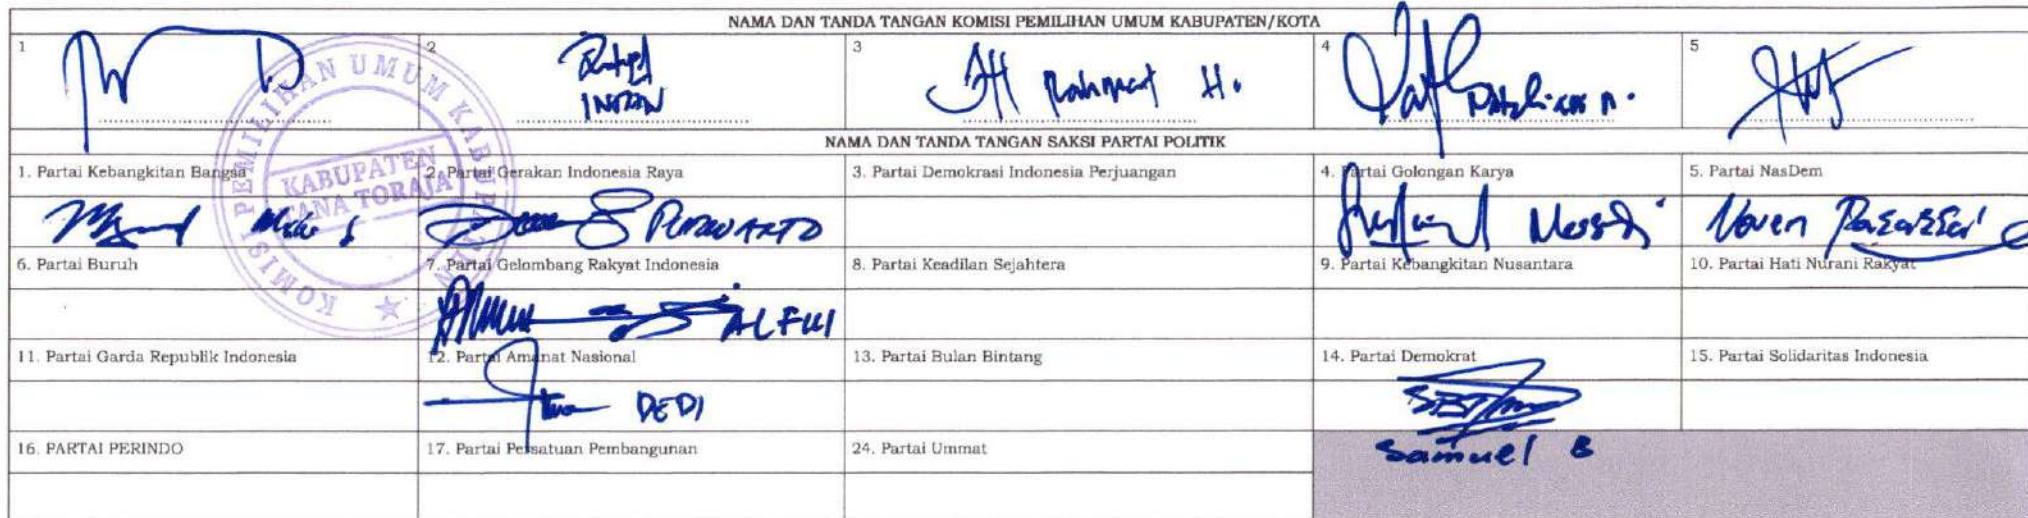 NAMA DAN TANDA TANGAN KOMISI PEMILIHAN UMUM KABUPATEN/KOTA
1 2 3 4 5
INTAN
Rahmat H.
NAMA DAN TANDA TANGAN SAKSI PARTAI POLITIK
1. Partai Kebangkitan Bangsa 2. Partai Gerakan Indonesia Raya 3. Partai Demokrasi Indonesia Perjuangan 4. Partai Golongan Karya 5. Partai NasDem
PURWANTO
6. Partai Buruh 7. Partai Gelombang Rakyat Indonesia 8. Partai Keadilan Sejahtera 9. Partai Kebangkitan Nusantara 10. Partai Hati Nurani Rakyat
11. Partai Garda Republik Indonesia 12. Partai Amanat Nasional 13. Partai Bulan Bintang 14. Partai Demokrat 15. Partai Solidaritas Indonesia
DEDI
Samuel B
16. PARTAI PERINDO 17. Partai Persatuan Pembangunan 24. Partai Ummat
KOMISI PEMILIHAN UMUM KABUPATEN
KABUPATEN
TANA TORAJA